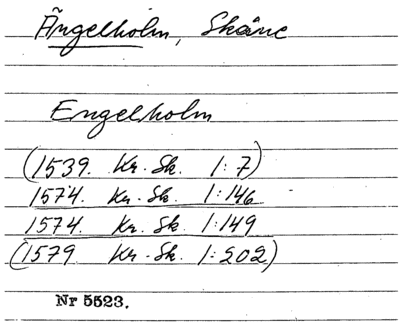 Ängelholm, Skåne
Engelholm
(1539. Kr. Sk. 1:7)
1574. Kr. Sk. 1:146
1574. Kr. Sk. 1:149
(1579 Kr. Sk. 1:202)
Nr 5523.